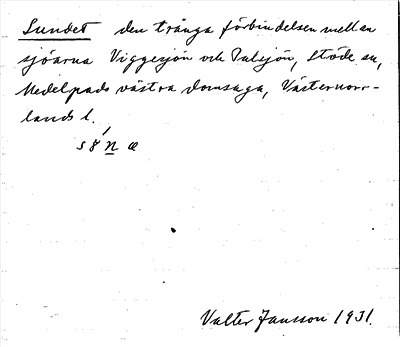 Sundet den trånga förbindelsen mellan
sjöarna Viggesjön och Dalsjön, Stöde sn,
Medelpads västra domsaga, Västernorr-
lands l.
Valter Jansson 1931.